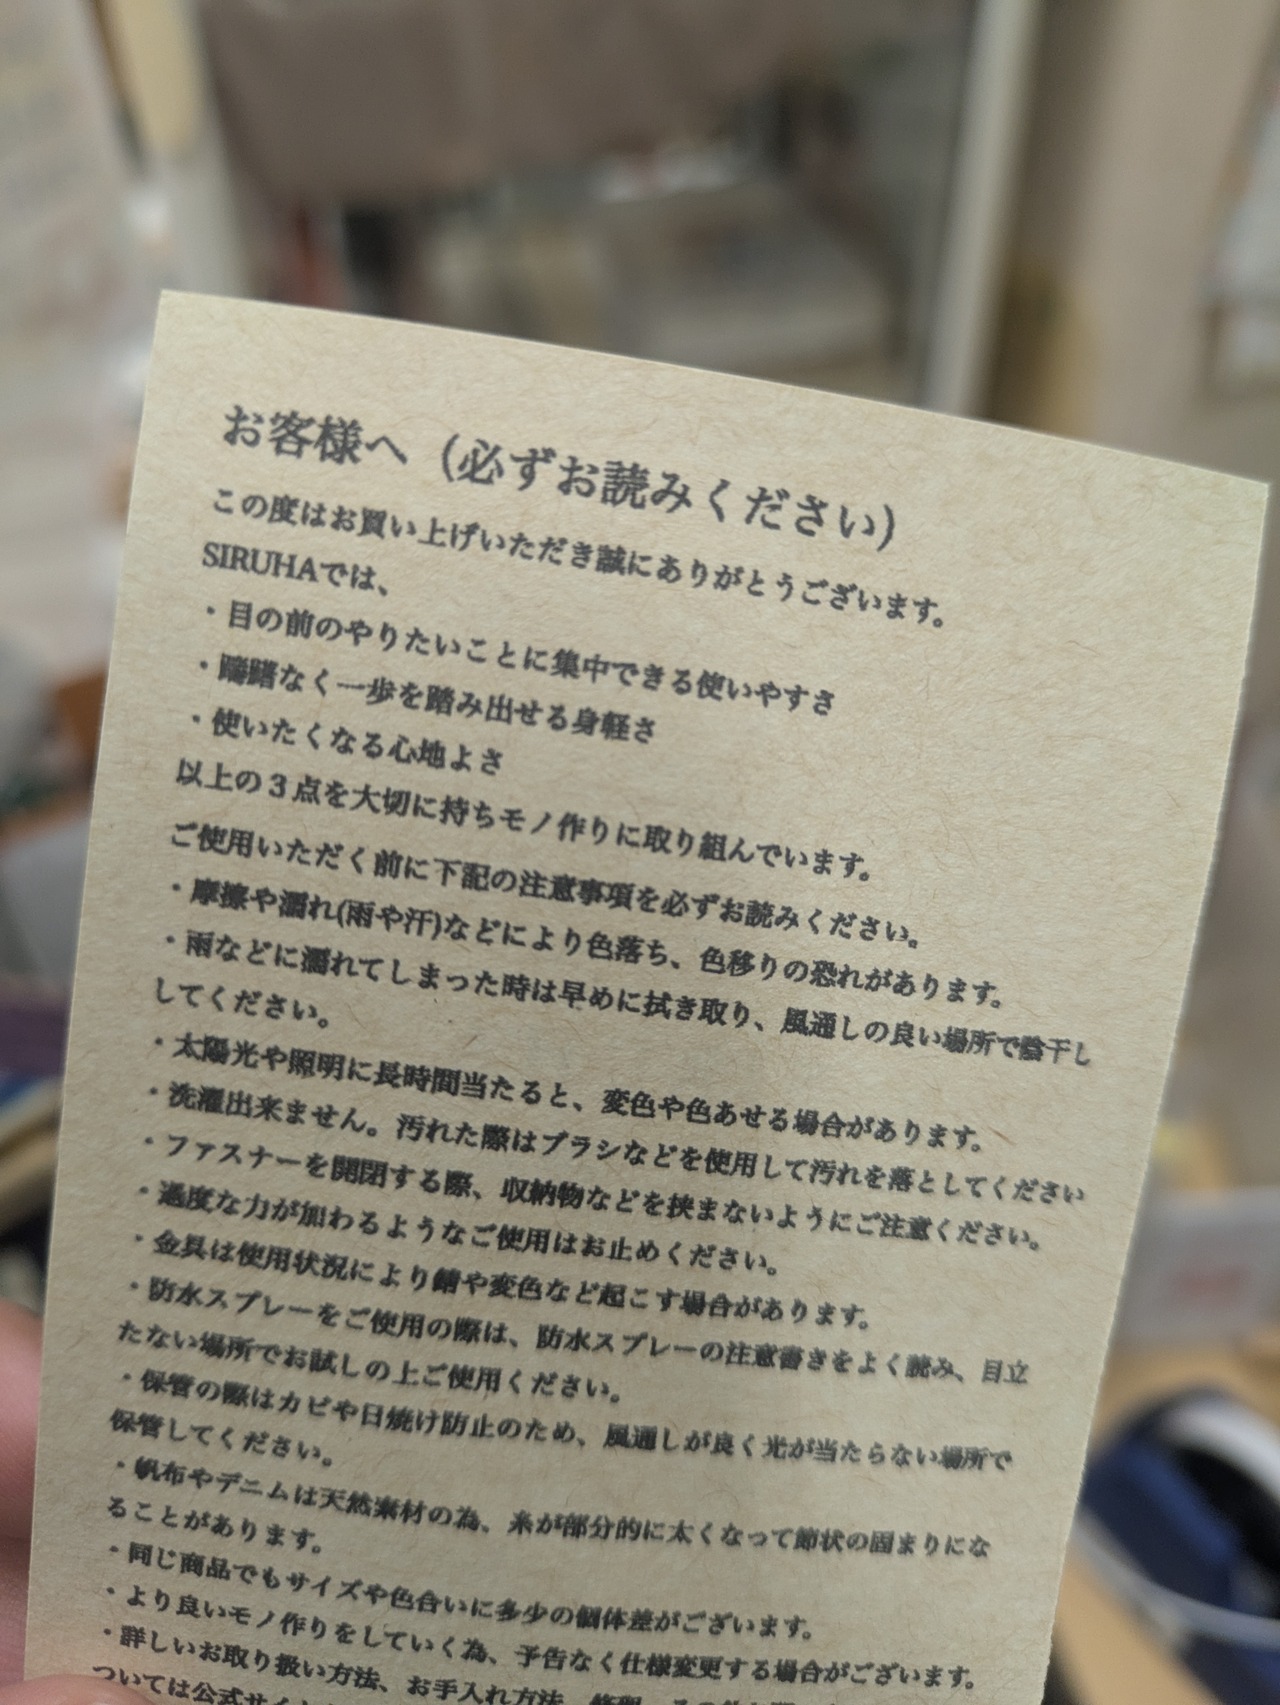 お客様へ（必ずお読みください）
この度はお買い上げいただき誠にありがとうございます。
SIRUHAでは、
・目の前のやりたいことに集中できる使いやすさ
・躊躇なく一歩を踏み出せる身軽さ
・使いたくなる心地よさ
以上の３点を大切に持ちモノ作りに取り組んでいます。
ご使用いただく前に下記の注意事項を必ずお読みください。
・摩擦や濡れ(雨や汗)などにより色落ち、色移りの恐れがあります。
・雨などに濡れてしまった時は早めに拭き取り、風通しの良い場所で陰干し
してください。
・太陽光や照明に長時間当たると、変色や色あせる場合があります。
・洗濯出来ません。汚れた際はブラシなどを使用して汚れを落としてください
・ファスナーを開閉する際、収納物などを挟まないようにご注意ください。
・過度な力が加わるようなご使用はお止めください。
・金具は使用状況により錆や変色など起こす場合があります。
・防水スプレーをご使用の際は、防水スプレーの注意書きをよく読み、目立
たない場所でお試しの上ご使用ください。
・保管の際はカビや日焼け防止のため、風通しが良く光が当たらない場所で
保管してください。
・帆布やデニムは天然素材の為、糸が部分的に太くなって節状の固まりにな
ることがあります。
・同じ商品でもサイズや色合いに多少の個体差がございます。
・より良いモノ作りをしていく為、予告なく仕様変更する場合がございます。
・詳しいお取り扱い方法、お手入れ方法、修理、その他
ついては公式サイト